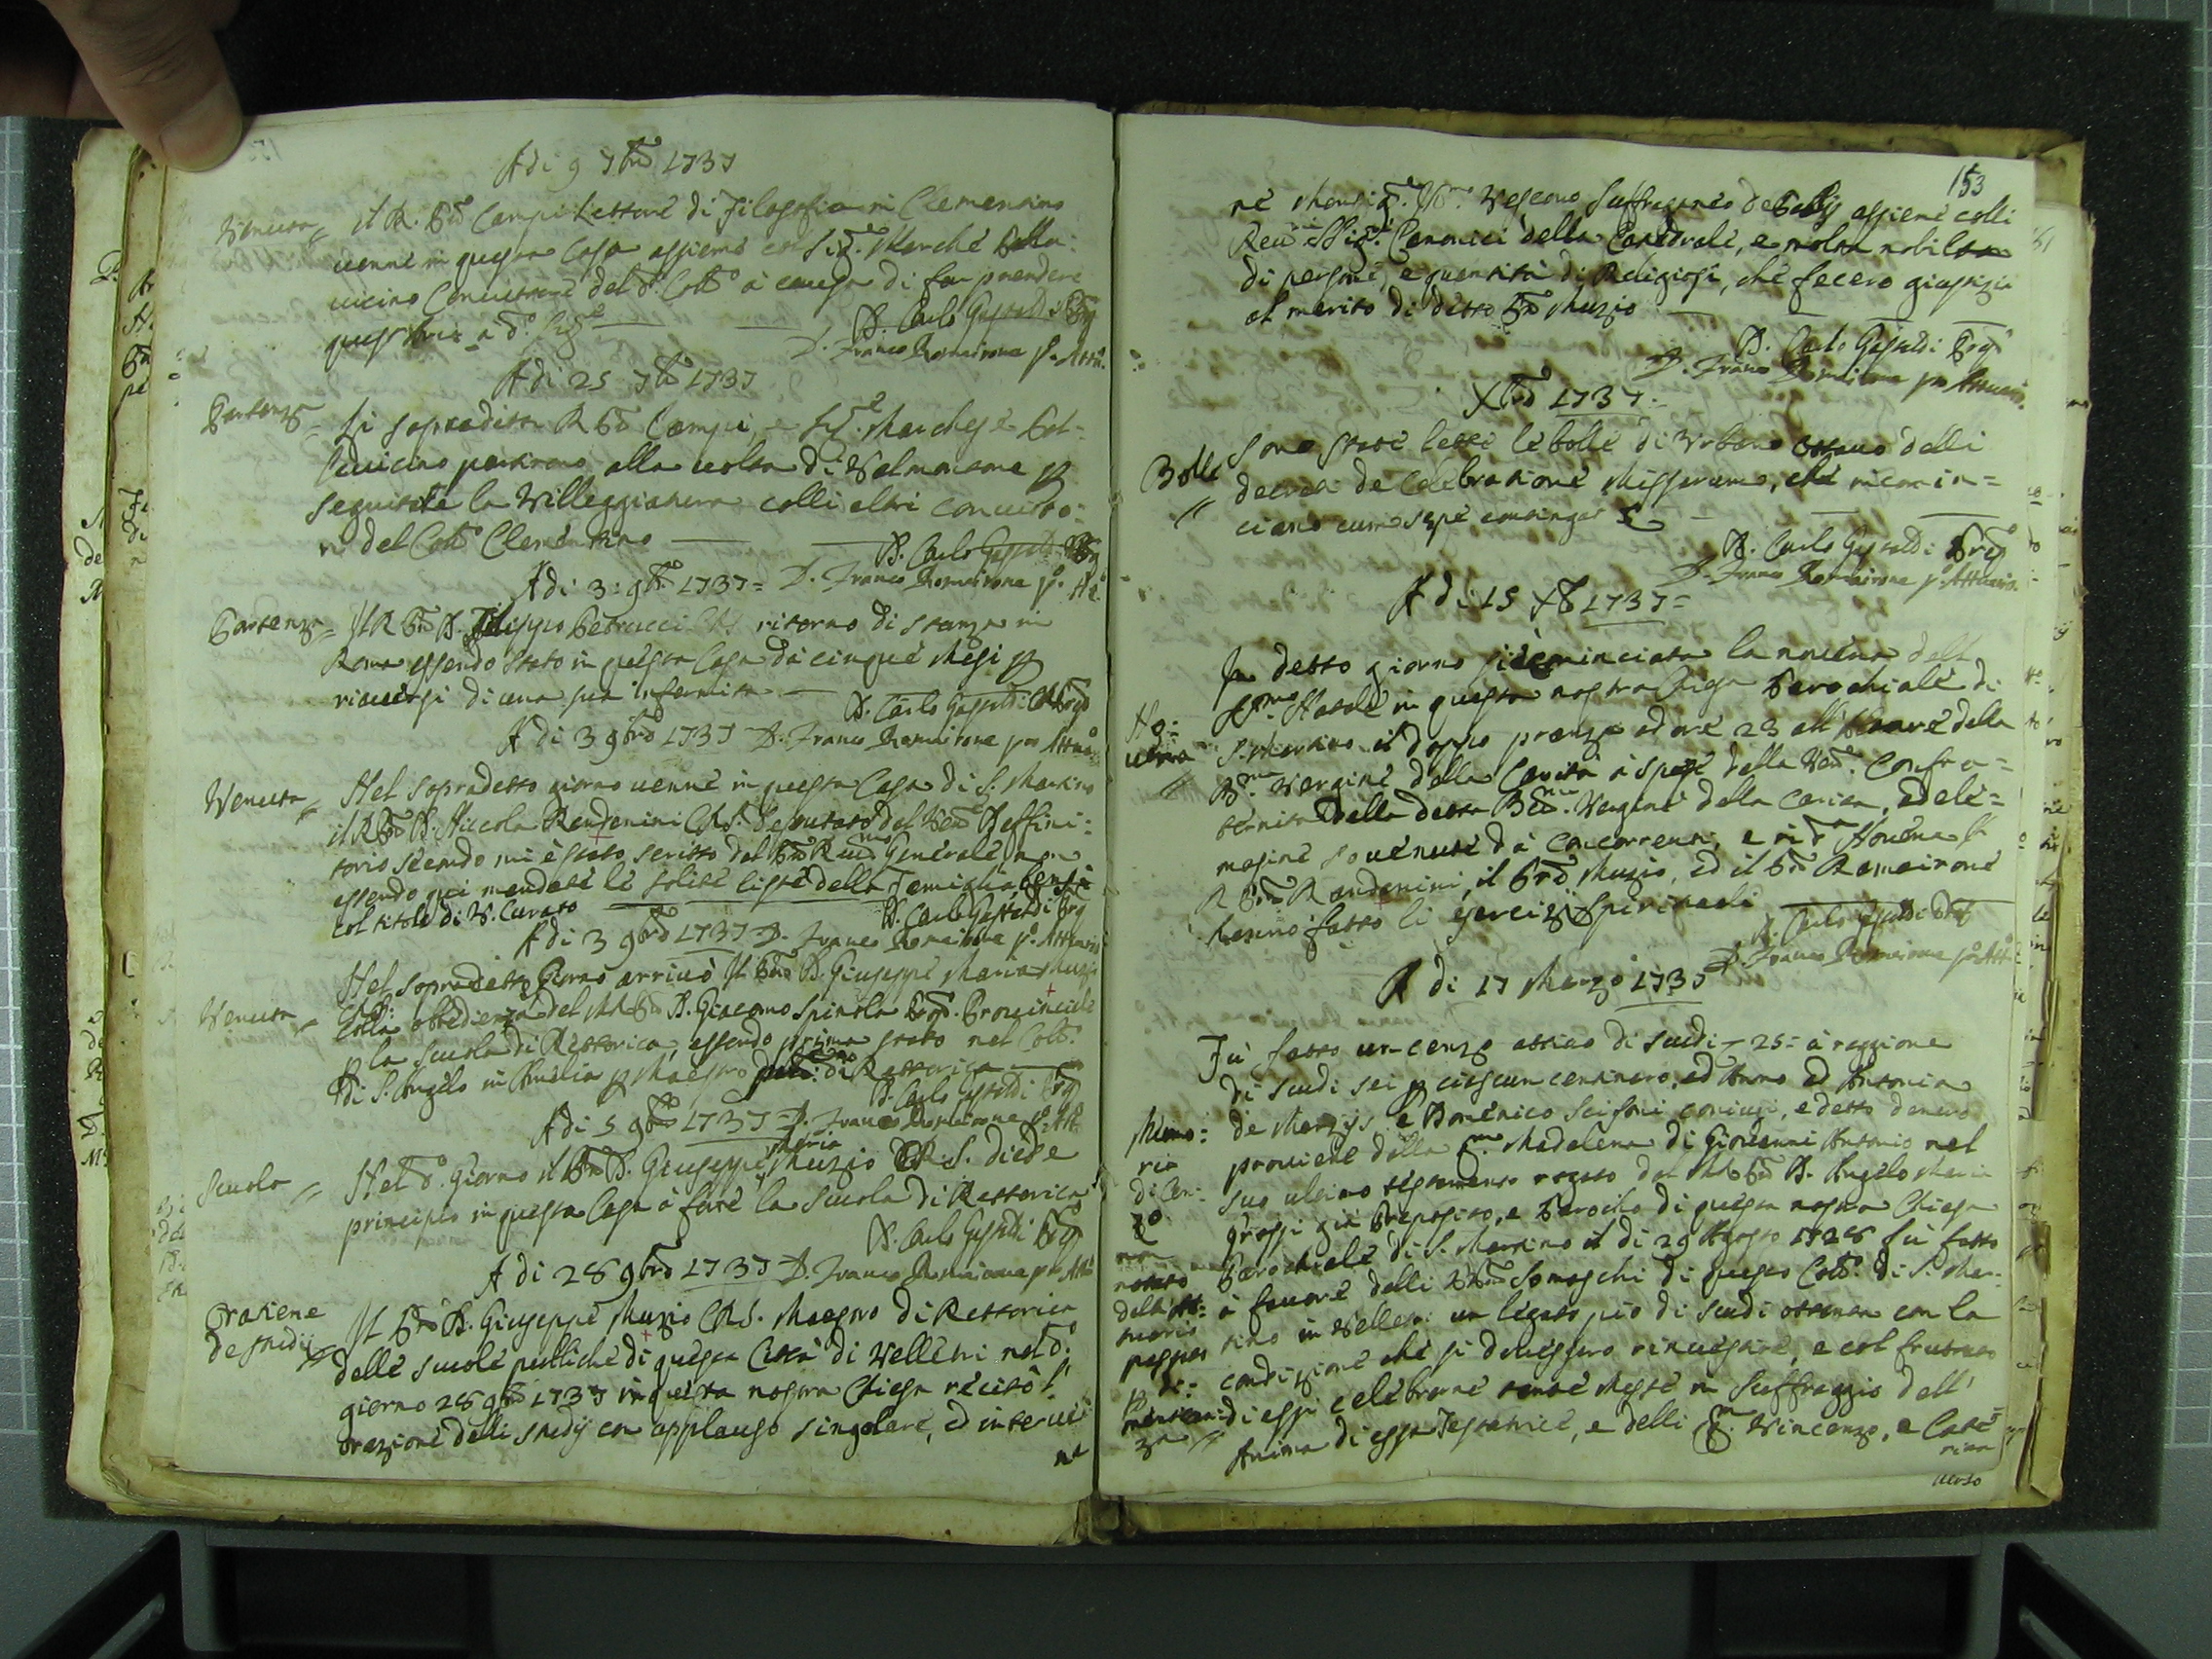 Adi 9 7bre 1737
Venuta = il R. Pre Campi Lettore di Filosofia in Clementino
venne in questa Casa assieme col Sigre Marche Palla:
vicino Convittore del do Collo à causa di far prendere
quest'aria à do Sigre
D. Carlo Gastaldi Prep
D. Franco Romairone po Attu.
Adi 25 7bre 1737
Partenza = Li sopradetti R Pre Campi, e Sigre Marchese Pal=
lavicino partirono alla volta di Valmontone p
seguitare la Villeggiatura colli altri convitto:
ri del Collo Clementino
D. Carlo Gastaldi Prep
Adi 3: 9bre 1737= D. Franco Romairone po Att.
Partenza = Il R Pre D. Filippo Petrucci CRS ritorno di stanza in
Roma essendo stato in questa Casa da cinque Mesi p
riaversi di una sua infermità
D. Carlo Gastaldi Prep
A di 3 9bre 1737 D. Franco Romairone po Attua
Venuta = Nel sopradetto giorno venne in questa Casa di S. Martino
il R Pre D. Niccola Rendenini CRS. Deputato dal Ven Deffini:
torio sicondo mi è stato scritto dal Pre Rmo Generale, non
essendo qui mandate le solite liste della Famiglia, bensi
col titolo di V. Curato
D. Carlo Gastaldi Prep
A di 3 9bre 1737 D. Franco Romairone po Attuario
Venuta = Nel sopradetto Giorno arrivò Il Pre D. Giuseppe Maria Muzio
CRS.
colla obbedienza del MR Pre D. Giacomo Spinola Prep. Provinciale
p la scuola di Rettorica, essendo prima stato nel Collo
di S. Angelo in Amelia p Maestro di Rettorica
D. Carlo Gastaldi Prep
Adi 5 9bre 1737 D. Franco Romairone po Att
Maria
Scuola = Nel do. Giorno il Pre D. Giuseppe Muzio CR.S. diede
principio in questa Casa à fare la scuola di Rettorica
D. Carlo Gastaldi Prep
A di 28 9bre 1737 D. Franco Romairone po Att
Oratione
de studij = Il Pre D. Giuseppe Muzio CRS. Maestro di Rettorica
delle scuole publiche di questa Città di Velletri nel do
giorno 28 9bre 1737 in questa nostra Chiesa recitò l'
orazione delli studij con applauso singolare, ed interve
ne
153
ne Monsigre Vescovo Suffraganeo assieme colli
Revmi Sigri Canonici della Catedrale, e molta nobiltà
di persone, e quantità di Religiosi, che fecero giustizia
al merito di detto Pre Muzio
D. Carlo Gastaldi Prep
D. Franco Romairone po Attuario.
Xbre 1737.
Bolle
=
Sono state lette le bolle di Urbano ottavo delli
decreti de Celebratione Missarum, che incomin=
ciano cum sepe contingat &
D. Carlo Gastaldi Prep
D. Franco Romairone po Attuario.
A di 15 Xb 1737=
No:
vena
=
In detto giorno si è cominciata la novena del
SSmo Natale in questa nostra Chiesa Parochiale di
S. Martino il doppo pranzo ad ore 23 all' Altare della
Bma Vergine della Carità à spese della Ven. Confra=
ternita della detta Bma Vergine della Carità, ed ele=
mosine sovenute da Concorrenti, e in da Novena il
R Pre Rendenini, il Pre Muzio, ed il Pre Romairone
hanno fatto li esercizj spirituali
D. Carlo Gastaldi Prep
D. Franco Romairone po Att
A di 17 Marzo 1737
Memo:
ria
di Cen:
zo
non
notato
dall' At:
tuario
passato
p di:
mentican:
za =
Fù fatto un cenzo attivo di scudi 25= à raggione
di scudi sei p ciascun centinaro, ad Anno ad Antonia
de Marzijs, e Domenico Scifoni coniugi, e detto denaro
proviene dalla qm. Madalena di Giovanni Antonio nel
suo ultimo testamento rogato dal MR Pre D. Angelo Maria
Grossi già Preposito, e Parocho di questa nostra Chiesa
Parochiale di S. Martino il di 29 Agosto 1728 fù fatto
à favore delli RR Pri Somaschi di questo Collo di S. Mar=
tino in Velletri un legato pio di scudi ottanta con la
condizione che si dovessero rinvestire, e col fruttato
di essi celebrarne tante Messe in suffraggio dell'
Anima di essa Testatrice, e delli qm. Vincenzo, e Cate=
rina